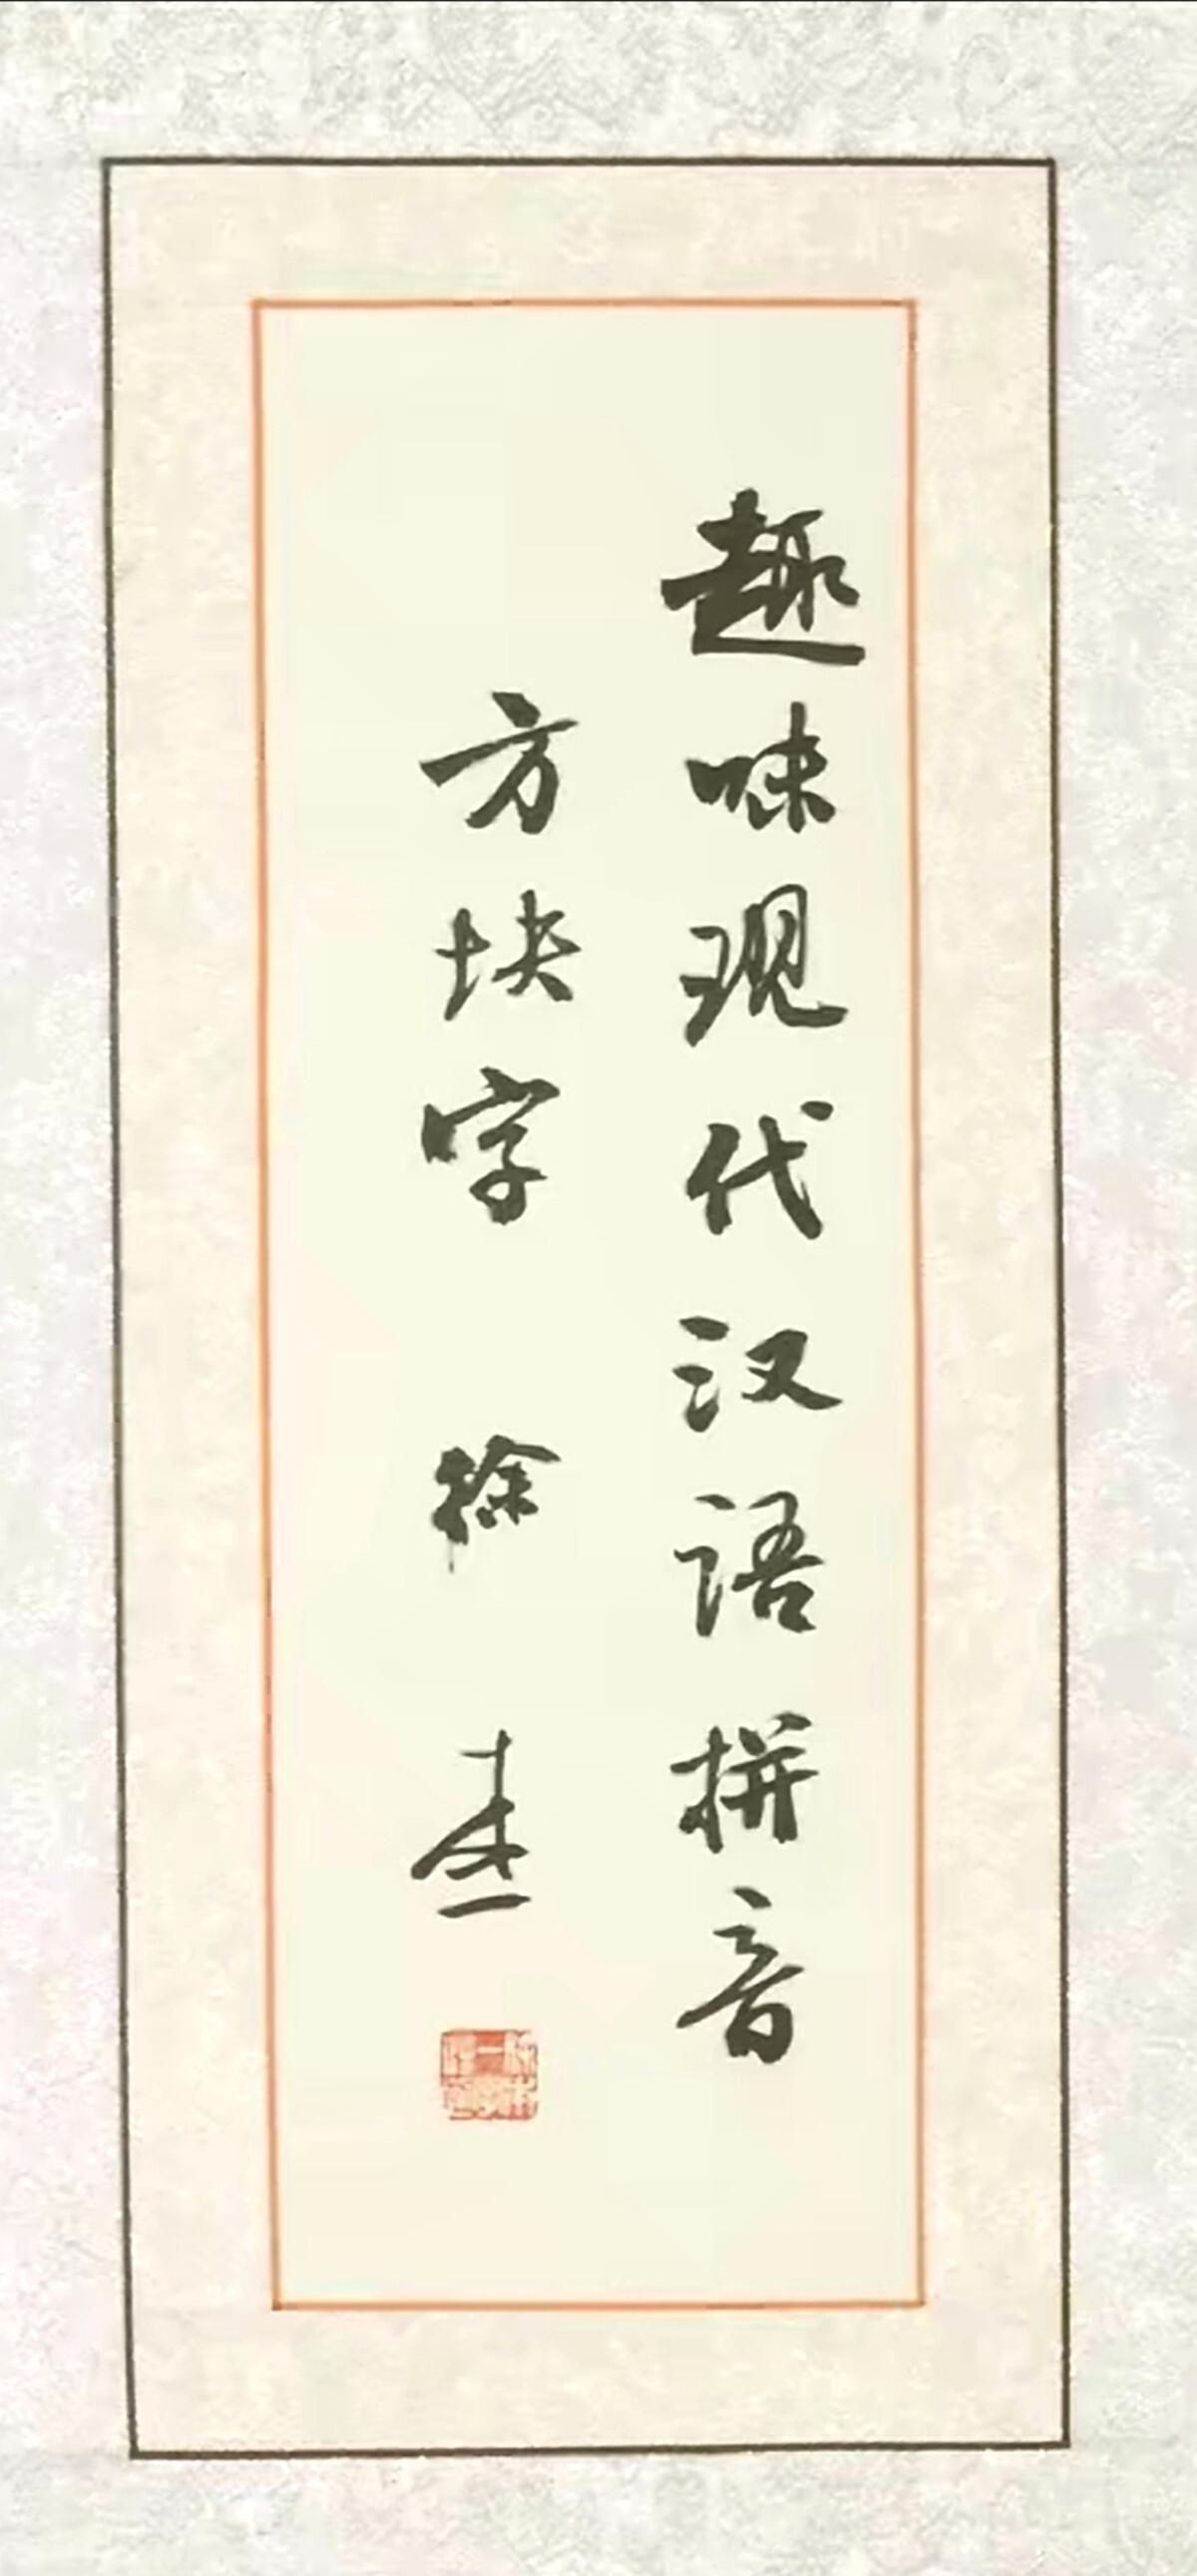 趣味现代汉语拼音
方块字 徐